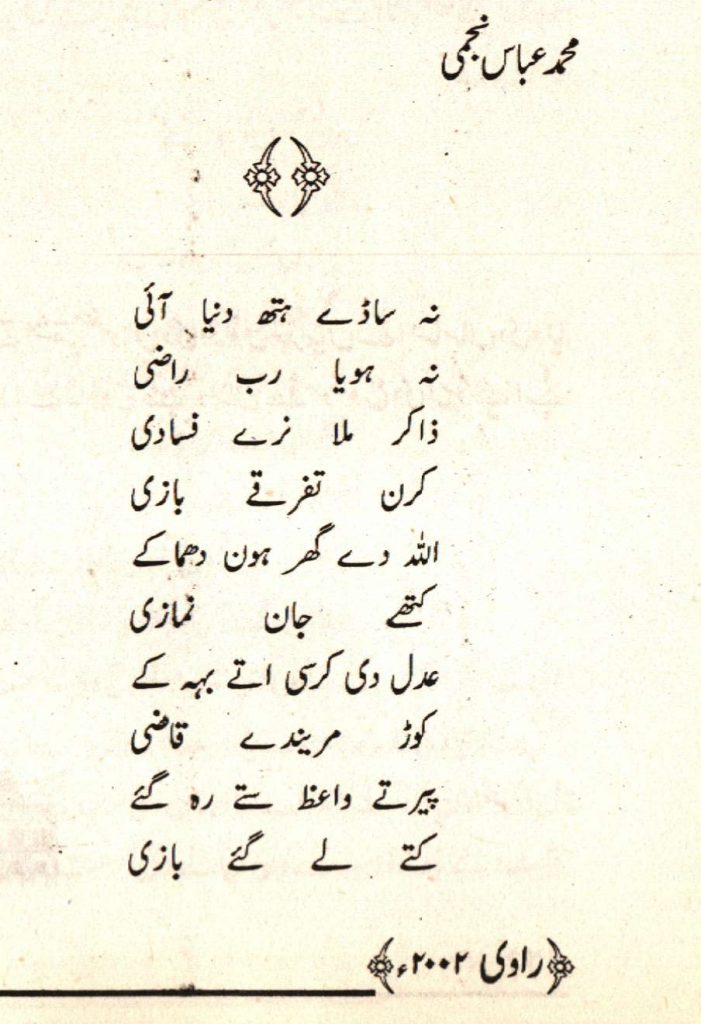 محمد عباس نجمی
نہ ساڈے ہتھ دنیا آئی
نہ ہویا رب راضی
ذاکر ملا نرے فسادی
کرن تفرقے بازی
اللہ دے گھر ہون دھماکے
کتھے جان نمازی
عدل دی کرسی اتے بہہ کے
کوڑ مریندے قاضی
پیرتے واعظ ستے رہ گئے
کتے لے گئے بازی
راوی ۲۰۰۲ء